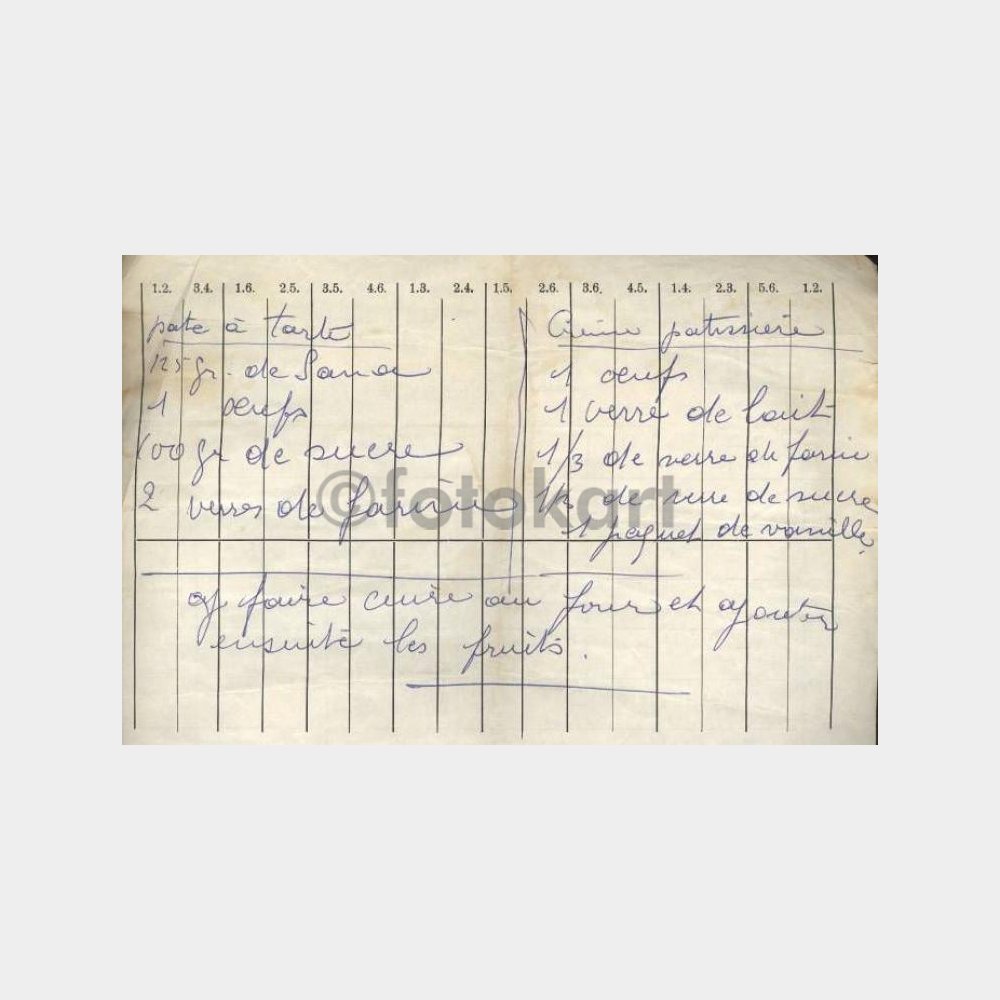 1.2. 3.4. 1.6. 2.5. 3.5. 4.6. 1.3. 2.4. 1.5. 2.6. 3.6. 4.5. 1.4. 2.3. 5.6. 1.2.
pate à tarte
125 gr. de Sana
1 oeufs
100 gr de sucre
2 verres de farine
Crème patissière
1 oeufs
1 verre de lait
1/3 de verre de farine
1/3 de verre de sucre
1 paquet de vanille
faire cuire au four et ajouter
ensuite les fruits.
©fotokart